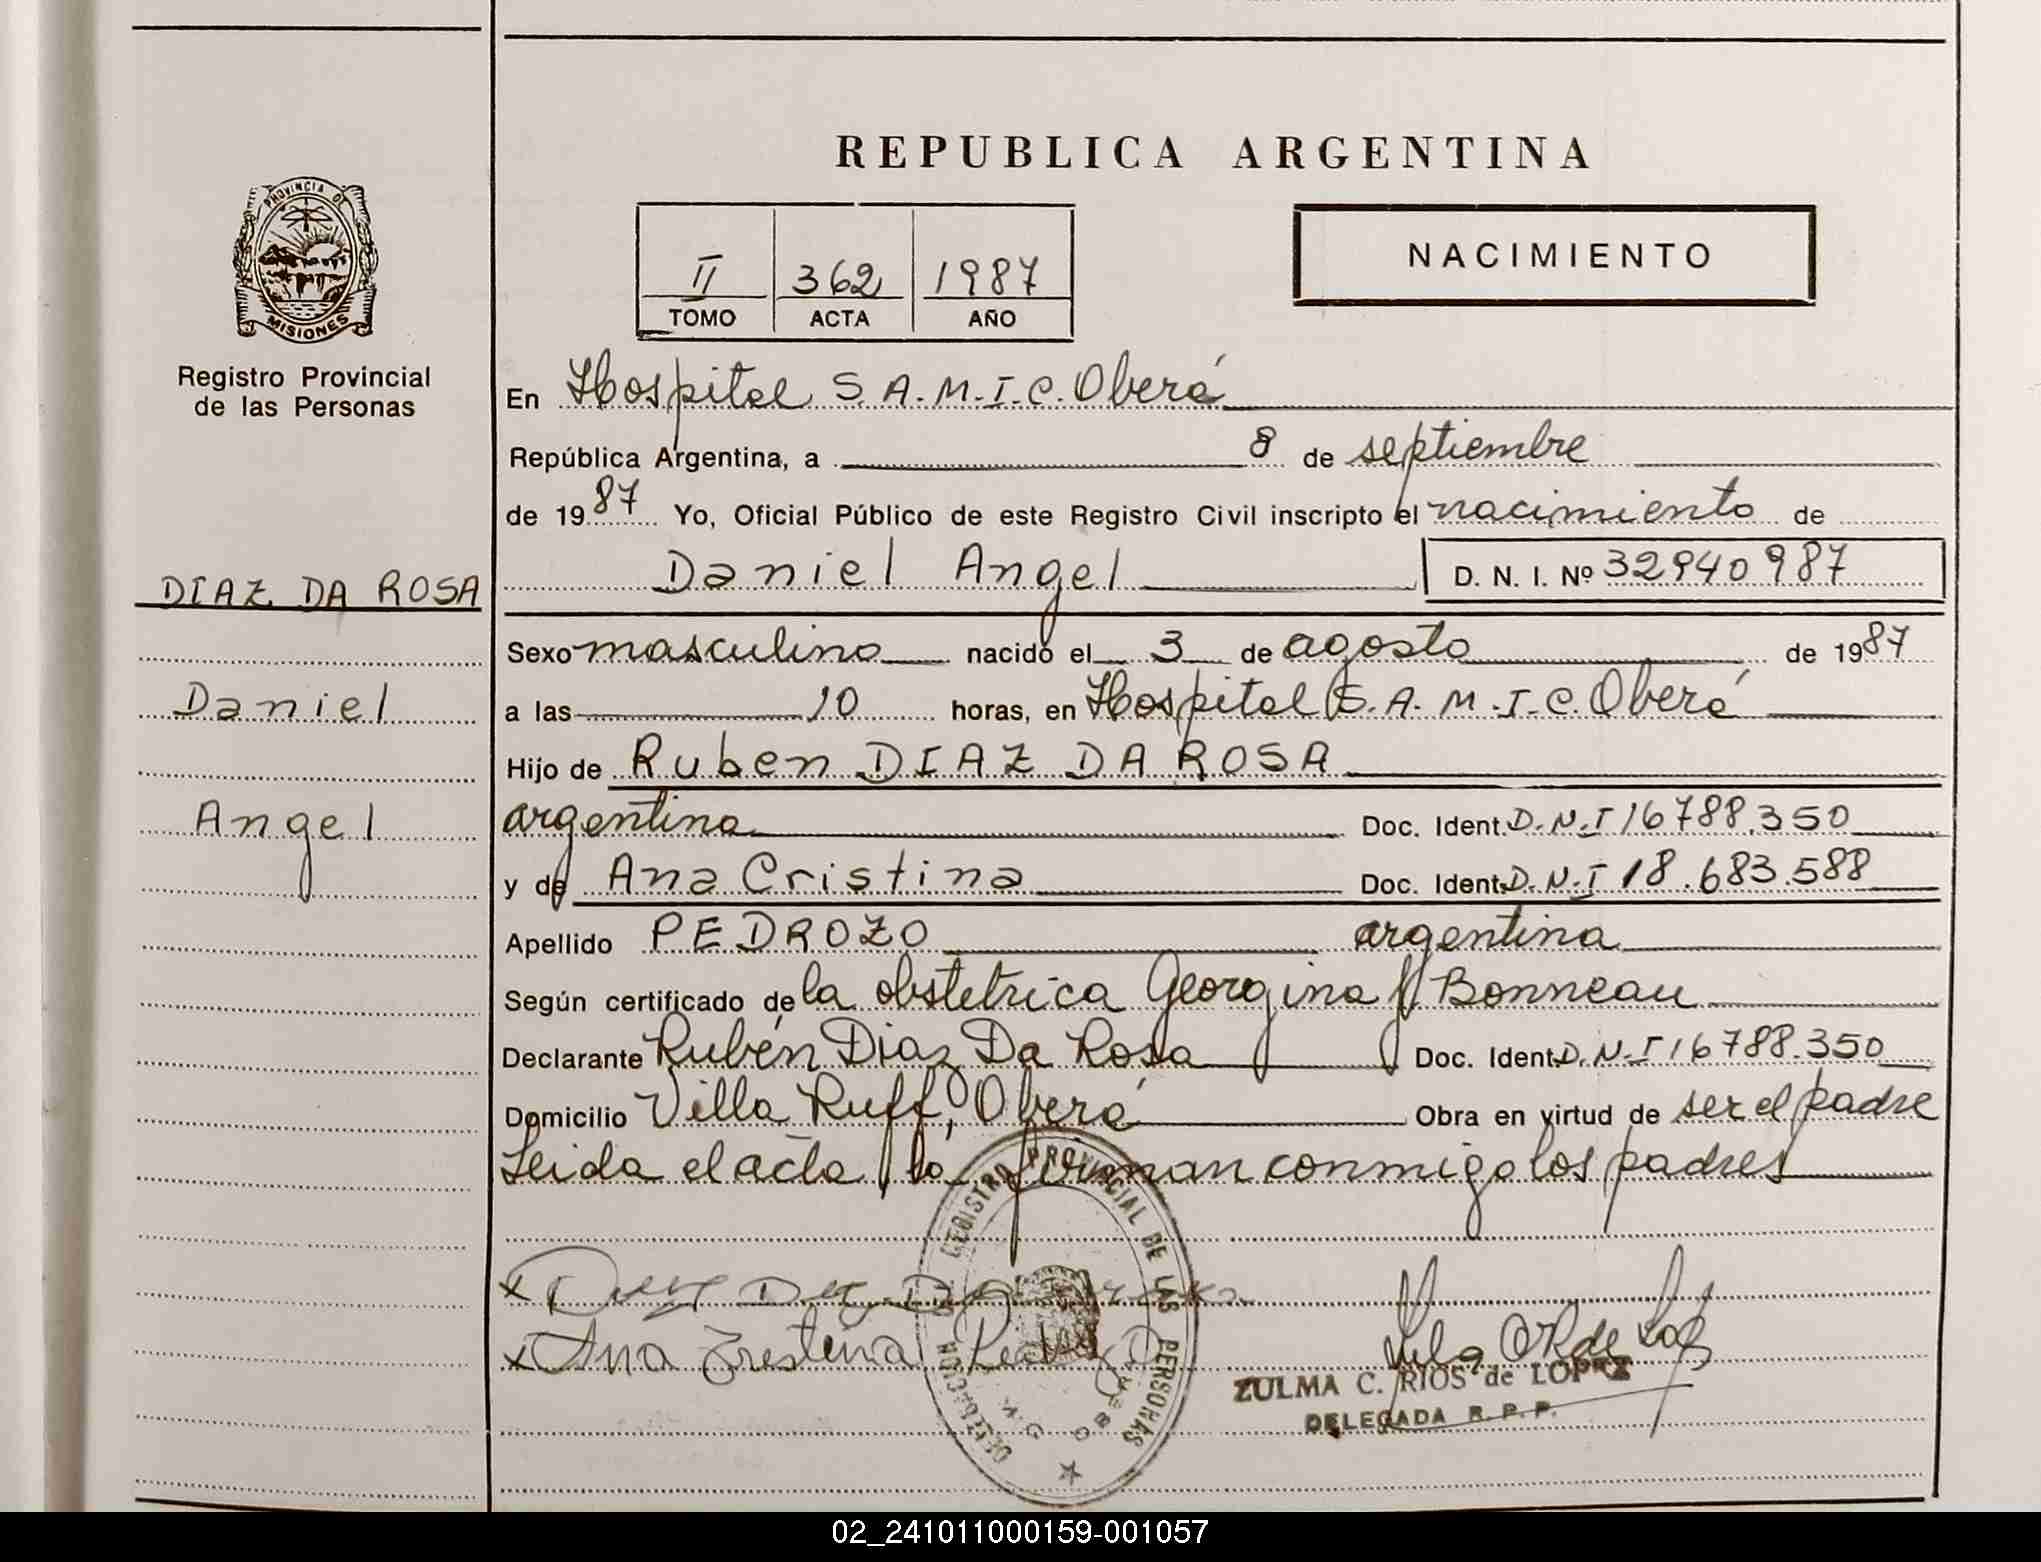 REPUBLICA ARGENTINA
PROVINCIA DE
MISIONES
Registro Provincial
de las Personas
II 362 1987
TOMO ACTA AÑO
NACIMIENTO
En Hospital S.A.M.I.C. Oberá
República Argentina, a 8 de septiembre
de 1987 Yo, Oficial Público de este Registro Civil inscripto el nacimiento de
DIAZ DA ROSA
Daniel
Angel
Daniel Angel D. N. I. Nº 32940987
Sexo masculino nacido el 3 de agosto de 1987
a las 10 horas, en Hospital S.A.M.I.C. Oberá
Hijo de Ruben DIAZ DA ROSA
argentina Doc. Ident. D.N.I 16788.350
y de Ana Cristina Doc. Ident. D.N.I 18.683.588
Apellido PEDROZO argentina
Según certificado de la obstetrica Georgina Bonneau
Declarante Rubén Diaz Da Rosa Doc. Ident. D.N.I 16788.350
Domicilio Villa Ruff, Oberá Obra en virtud de ser el padre
Leida el acta la firman conmigo los padres
REGISTRO PROVINCIAL DE LAS PERSONAS
ZULMA C. RIOS de LOPEZ
DELEGADA R. P. P.
02_241011000159-001057